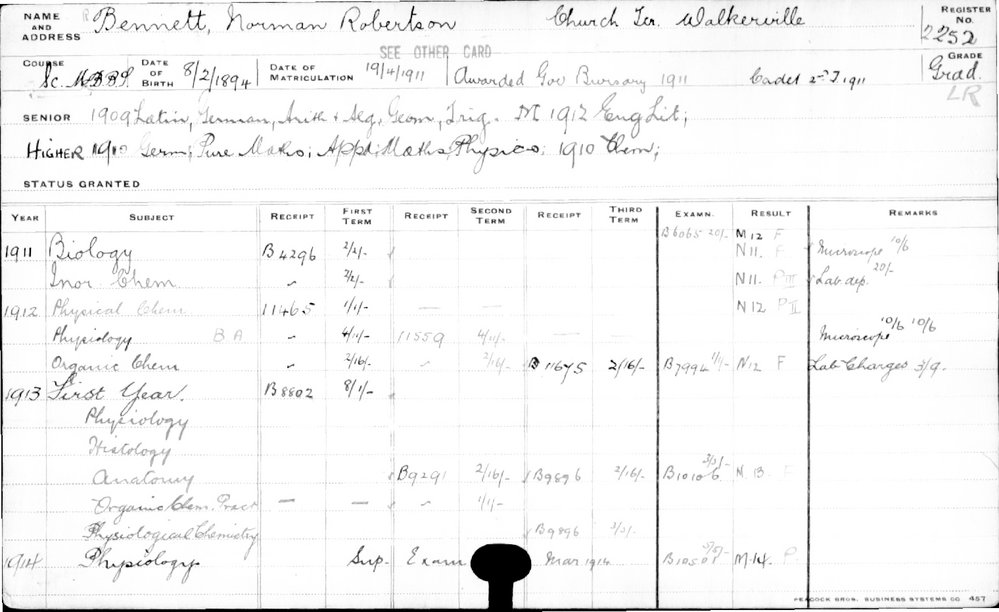 NAME AND ADDRESS Bennett, Norman Robertson Church Ter. Walkerville REGISTER No. 2252
SEE OTHER CARD
COURSE Sc. M.B.B.S. DATE OF BIRTH 8/2/1894 DATE OF MATRICULATION 19/4/1911 Awarded Gov Bursary 1911 Cadet 1911 GRADE Grad.
LR
SENIOR 1909 Latin, German, Arith & Alg, Geom, Trig. M 1912 Eng Lit;
HIGHER 1910 Germ; Pure Maths; Appd. Maths; Physics; 1910 Chem;
STATUS GRANTED
YEAR SUBJECT RECEIPT FIRST TERM RECEIPT SECOND TERM RECEIPT THIRD TERM EXAMN. RESULT REMARKS
B6065 20/- M12 F
1911 Biology B4296 2/2/- N11. F Microscope 10/6
Inor. Chem " 2/2/- N11. P III Lab dep. 20/-
1912 Physical Chem 11465 1/1/- — — N12 P II
Physiology B A " 4/11/- 11559 4/11/- — Microscope 10/6 10/6
Organic Chem " 2/16/- " 2/16/- B11675 2/16/- B7994 1/1/- N12 F Lab Charges 3/9.
1913 First Year. B8802 8/1/-
Physiology
Histology
Anatomy B9291 2/16/- B9896 2/16/- B10106 3/3/- N.13 F
Organic Chem. Pract — — " 1/1/-
Physiological Chemistry B9896 3/3/-
1914 Physiology Sup. Exam Mar 1914 B10501 5/5/- M.14. P
PEACOCK BROS. BUSINESS SYSTEMS CO. 457